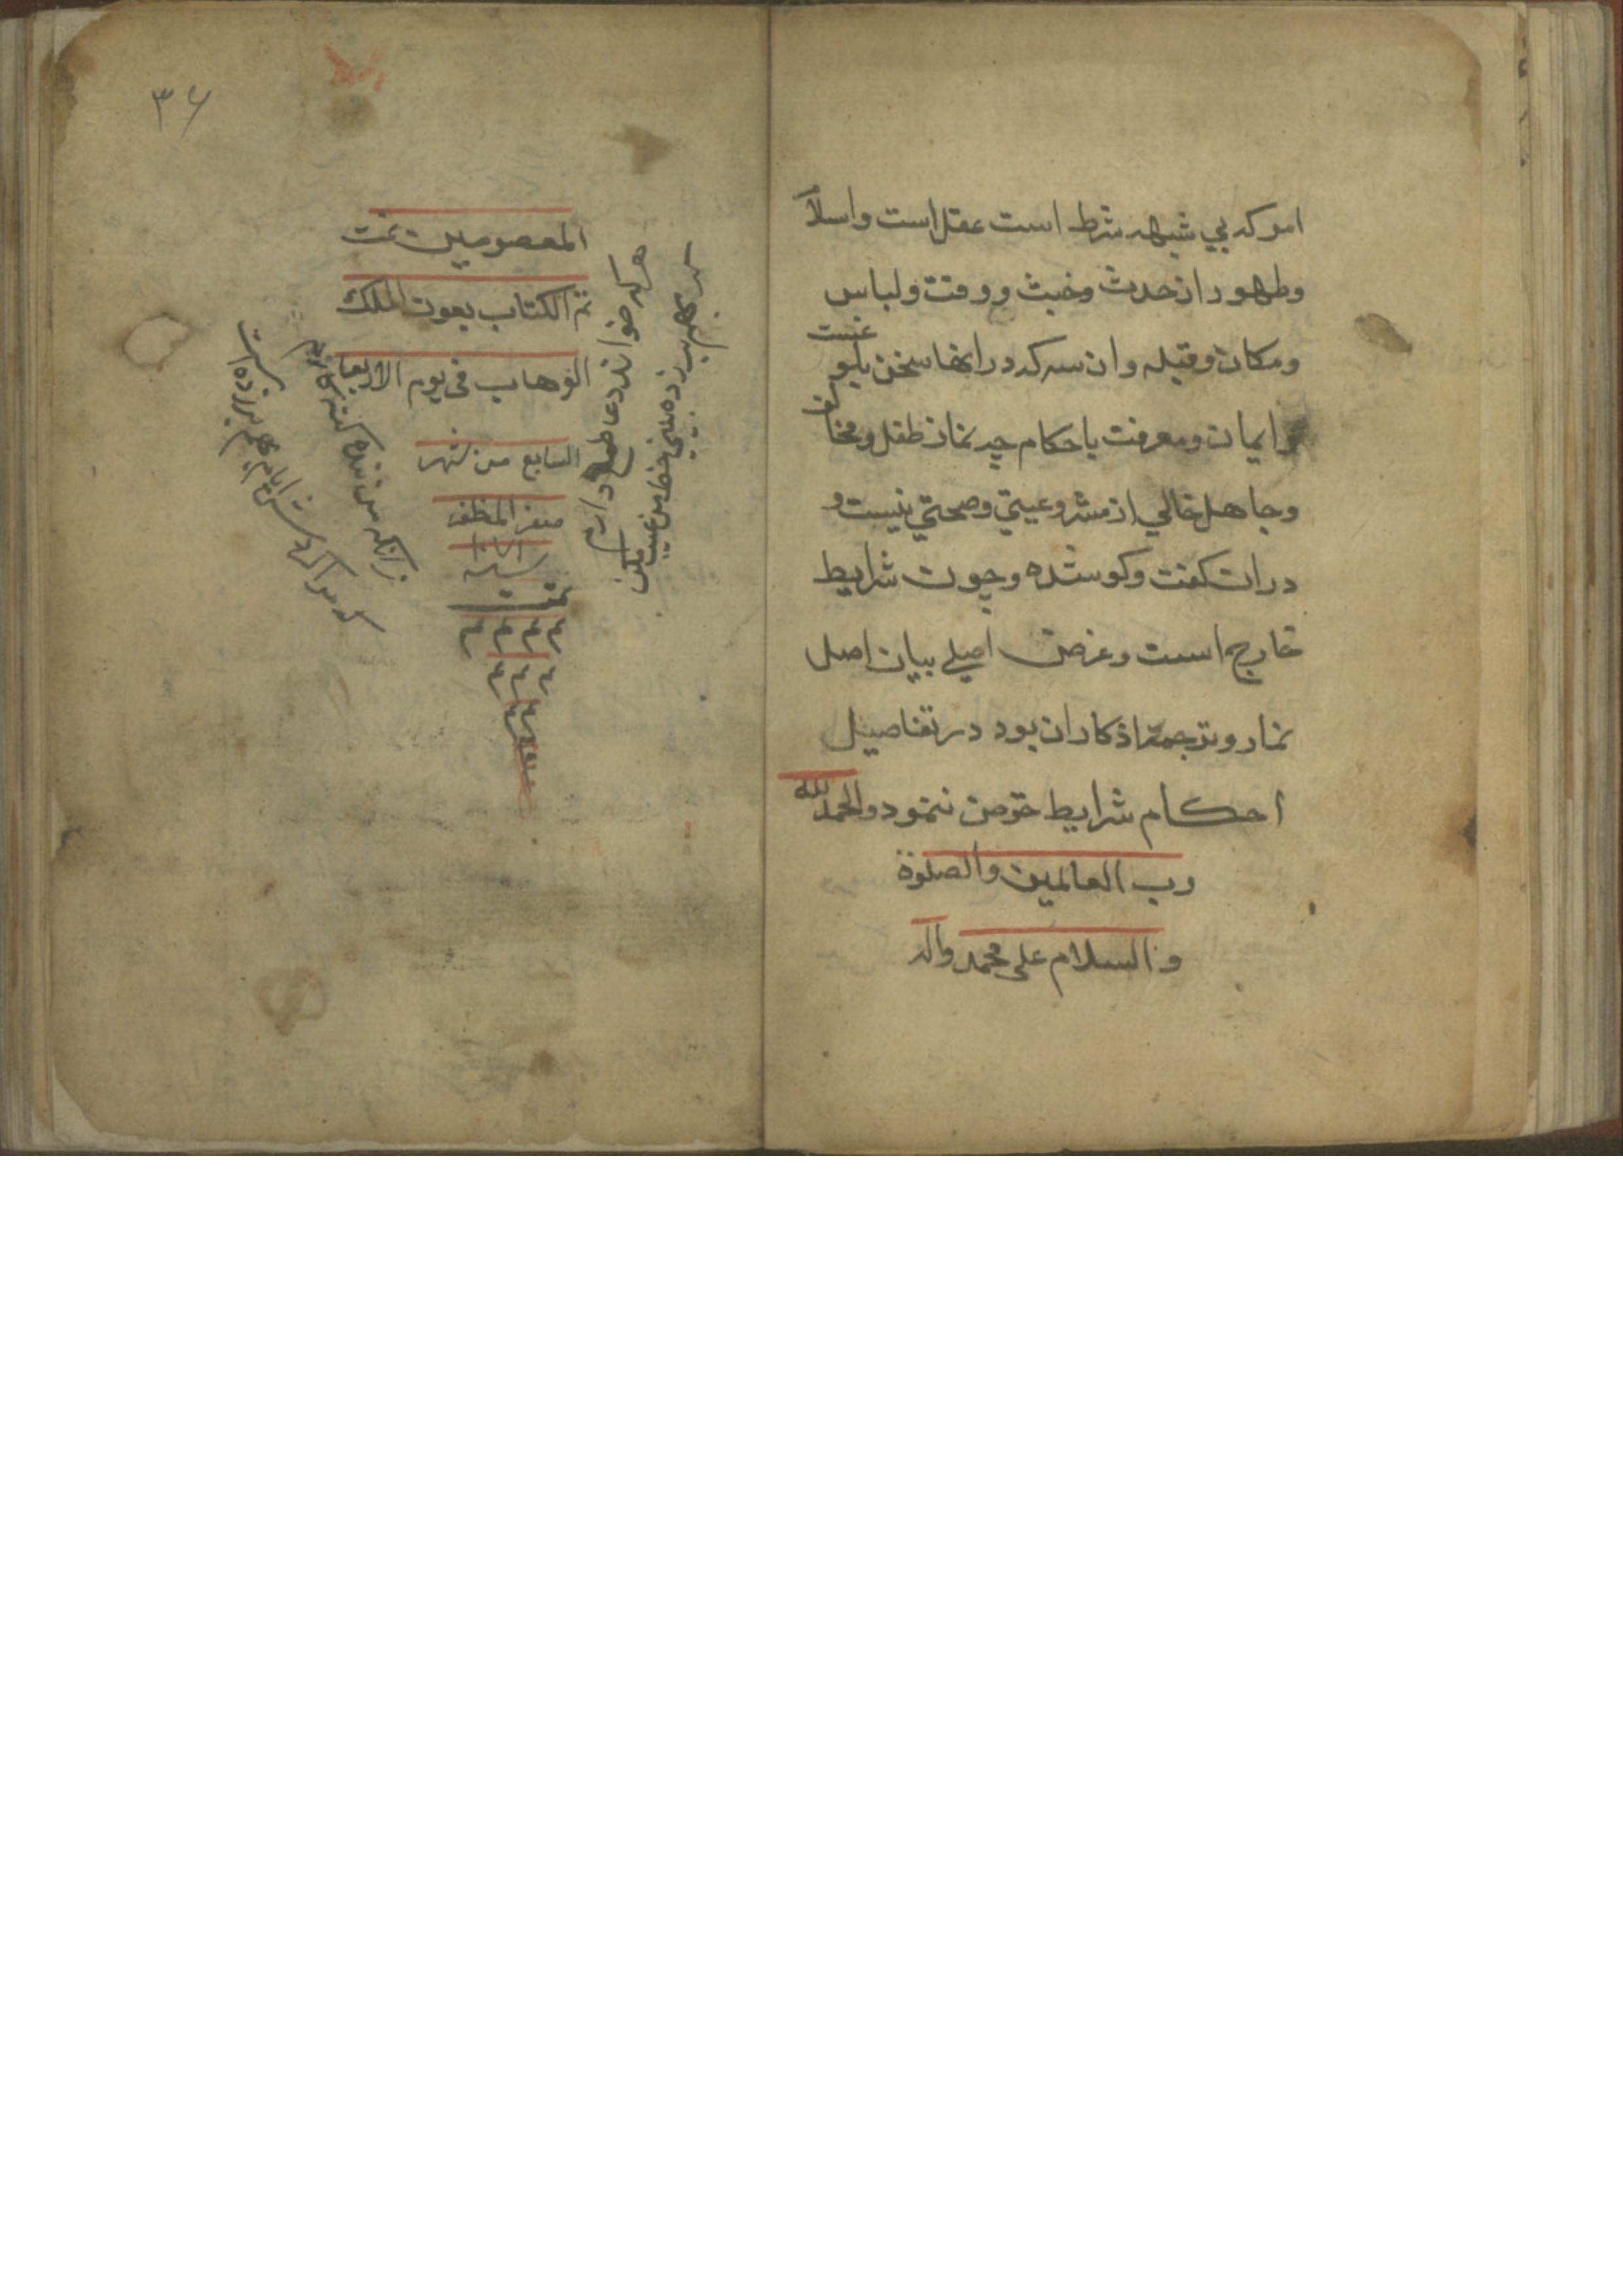 امر که بي شبهه شرط است عقل است واسلا
وطهور از حدث وخبث ووقت ولباس
ومکان وقبله وان سه که در اینها سخن نیست
وایمان ومعرفت باحکام چه نماز طفل ومخالف
وجاهل خالي از مشروعیتي وصحتي نیست و
دران کفت وکو شده وچون شرایط
خارج است وغرض اصلي بیان اصل
نماز وترجمۀ اذکار ان بود در تفاصیل
احکام شرایط خوض ننمود والحمد لله
رب العالمین والصلوة
والسلام علی محمد واله
۳۶
المعصومین تمت
تم الکتاب بعون الملک
الوهاب فی یوم الاربعا
السابع من شهر
صفر المظفر
سنه
تمت
م م م م
هر که خواند دعا طمع دارم
زانکه من بنده کنه کارم